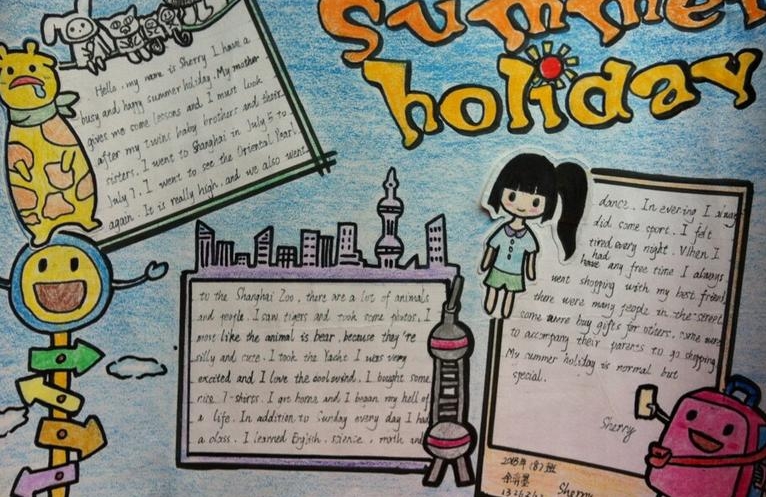 Summer
holiday
Hello, my name is Sherry. I have a
busy and happy summer holiday. My mother
gives me some lessons and I must look
after my twins baby brothers and their
sisters. I went to Shanghai in July 5 to
July 7. I went to see the Oriental Pearl
again. It is really high, and we also went
to the Shanghai Zoo, there are a lot of animals
and people. I saw tigers and took some photos. I
most like the animal is bear, because they're
silly and cute. I took the Yacht I was very
excited and I love the coolwind. I bought some
nice T-shirts. I got home and I began my hell of
a life. In addition to Sunday every day I had
a class. I learned English, science, math and
dance. In evering I
did some sport. I felt
tired every night. When I
had
have any free time I always
went shopping with my best friend
there were many people in the street
some were buy gifts for others, some were
to accompany their parents to go shopping
My summer holiday is normal but
special.
Sherry
Sherry